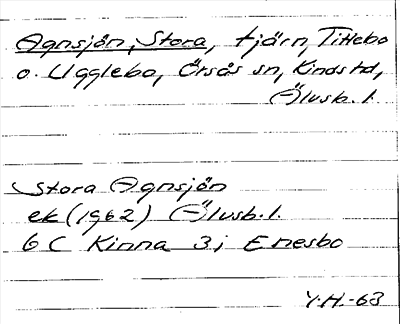 Agnsjön, Stora, tjärn, Tittebo
o. Ugglebo, Örsås sn, Kinds hd,
Älvsb. l.
Stora Agnsjön
ek (1962) Älvsb. l.
6 C Kinna 3i Enesbo
Y.H.-63